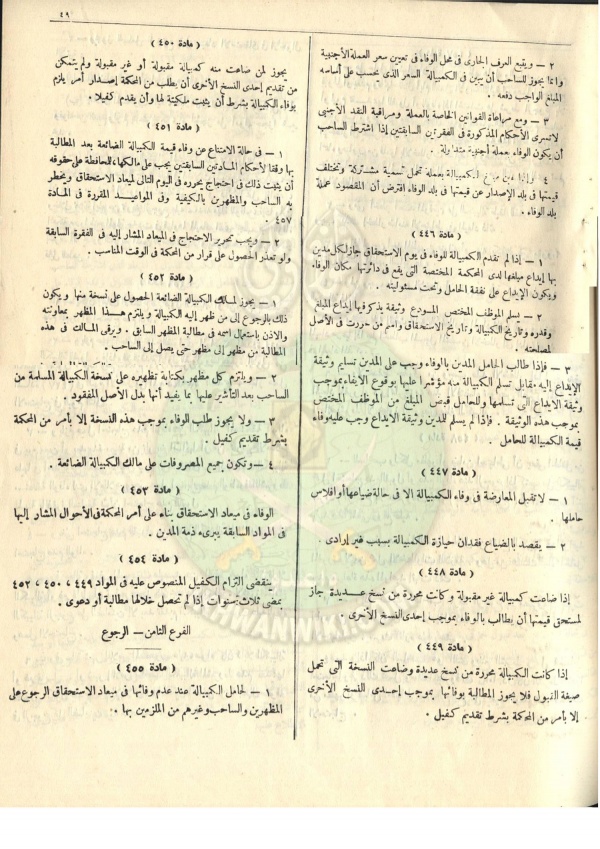 ٤٩
٢ – ويتبع العرف الجارى فى محل الوفاء فى تعيين سعر العملة الأجنبية
وانما يجوز للساحب أن يبين فى الكمبيالة السعر الذى يحسب على أساسه
المبلغ الواجب دفعه .
٣ – ومع مراعاة القوانين الخاصة بالعملة ومراقبة النقد الأجنبى
لاتسرى الأحكام المذكورة فى الفقرتين السابقتين إذا اشترط الساحب
أن يكون الوفاء بعملة أجنبية متداولة .
٤ – وإذا عين مبلغ الكمبيالة بعملة تحمل تسمية مشتركة وتختلف
قيمتها فى بلد الإصدار عن قيمتها فى بلد الوفاء افترض أن المقصود عملة
بلد الوفاء .
( مادة ٤٤٦ )
١ – إذا لم تقدم الكمبيالة للوفاء فى يوم الاستحقاق جاز لكل مدين
بها إيداع مبلغها لدى المحكمة المختصة التى يقع فى دائرتها مكان الوفاء
ويكون الإيداع على نفقة الحامل وتحت مسئوليته .
٢ – يسلم الموظف المختص المودع وثيقة يذكر فيها إيداع المبلغ
وقدره وتاريخ الكمبيالة وتاريخ الاستحقاق واسم من حررت فى الأصل
لمصلحته .
٣ – فإذا طالب الحامل المدين بالوفاء وجب على المدين تسليم وثيقة
الإيداع إليه مقابل تسلم الكمبيالة منه مؤشرا عليها بوقوع الايفاء بموجب
وثيقة الايداع التى تسلمها وللحامل قبض المبلغ من الموظف المختص
بموجب هذه الوثيقة . فإذا لم يسلم للمدين وثيقة الايداع وجب عليه وفاء
قيمة الكمبيالة للحامل .
( مادة ٤٤٧ )
١ – لا تقبل المعارضة فى وفاء الكمبيالة الا فى حالة ضياعها أو افلاس
حاملها .
٢ – يقصد بالضياع فقدان حيازة الكمبيالة بسبب غير إرادى .
( مادة ٤٤٨ )
إذا ضاعت كمبيالة غير مقبولة وكانت محررة من نسخ عديدة جاز
لمستحق قيمتها أن يطالب بالوفاء بموجب إحدى النسخ الأخرى .
( مادة ٤٤٩ )
إذا كانت الكمبيالة محررة من نسخ عديدة وضاعت النسخة التى تحمل
صيغة القبول فلا يجوز المطالبة بوفائها بموجب إحدى النسخ الأخرى
إلا بأمر من المحكمة بشرط تقديم كفيل .
( مادة ٤٥٠ )
يجوز لمن ضاعت منه كمبيالة مقبولة أو غير مقبولة ولم يتمكن
من تقديم إحدى النسخ الأخرى أن يطلب من المحكمة إصدار أمر يلزم
بوفاء الكمبيالة بشرط أن يثبت ملكيته لها وأن يقدم كفيلا .
( مادة ٤٥١ )
١ – فى حالة الامتناع عن وفاء قيمة الكمبيالة الضائعة بعد المطالبة
بها وفقا لأحكام المادتين السابقتين يجب على مالكها للمحافظة على حقوقه
أن يثبت ذلك فى احتجاج يحرره فى اليوم التالى لميعاد الاستحقاق ويخطر
به الساحب والمظهرين بالكيفية وفى المواعيد المقررة فى المادة
٤٥٧
٢ – ويجب تحرير الاحتجاج فى الميعاد المشار إليه فى الفقرة السابقة
ولو تعذر الحصول على قرار من المحكمة فى الوقت المناسب .
( مادة ٤٥٢ )
١ – يجوز لمالك الكمبيالة الضائعة الحصول على نسخة منها ويكون
ذلك بالرجوع إلى من ظهر إليه الكمبيالة ويلتزم هذا المظهر بمعاونته
والاذن باستعمال اسمه فى مطالبة المظهر السابق . ويرقى المالك فى هذه
المطالبة من مظهر إلى مظهر حتى يصل إلى الساحب .
٢ – ويلتزم كل مظهر بكتابة تظهيره على نسخة الكمبيالة المسلمة من
الساحب بعد التأشير عليها بما يفيد أنها بدل الأصل المفقود .
٣ – ولا يجوز طلب الوفاء بموجب هذه النسخة إلا بأمر من المحكمة
بشرط تقديم كفيل .
٤ – وتكون جميع المصروفات على مالك الكمبيالة الضائعة .
( مادة ٤٥٣ )
الوفاء فى ميعاد الاستحقاق بناء على أمر المحكمة فى الأحوال المشار إليها
فى المواد السابقة يبرىء ذمة المدين .
( مادة ٤٥٤ )
ينقضى التزام الكفيل المنصوص عليه فى المواد ٤٤٩ ، ٤٥٠ ، ٤٥٢
بمضى ثلاث سنوات إذا لم تحصل خلالها مطالبة أو دعوى .
الفرع الثامن – الرجوع
( مادة ٤٥٥ )
١ – لحامل الكمبيالة عند عدم وفائها فى ميعاد الاستحقاق الرجوع على
المظهرين والساحب وغيرهم من الملزمين بها .